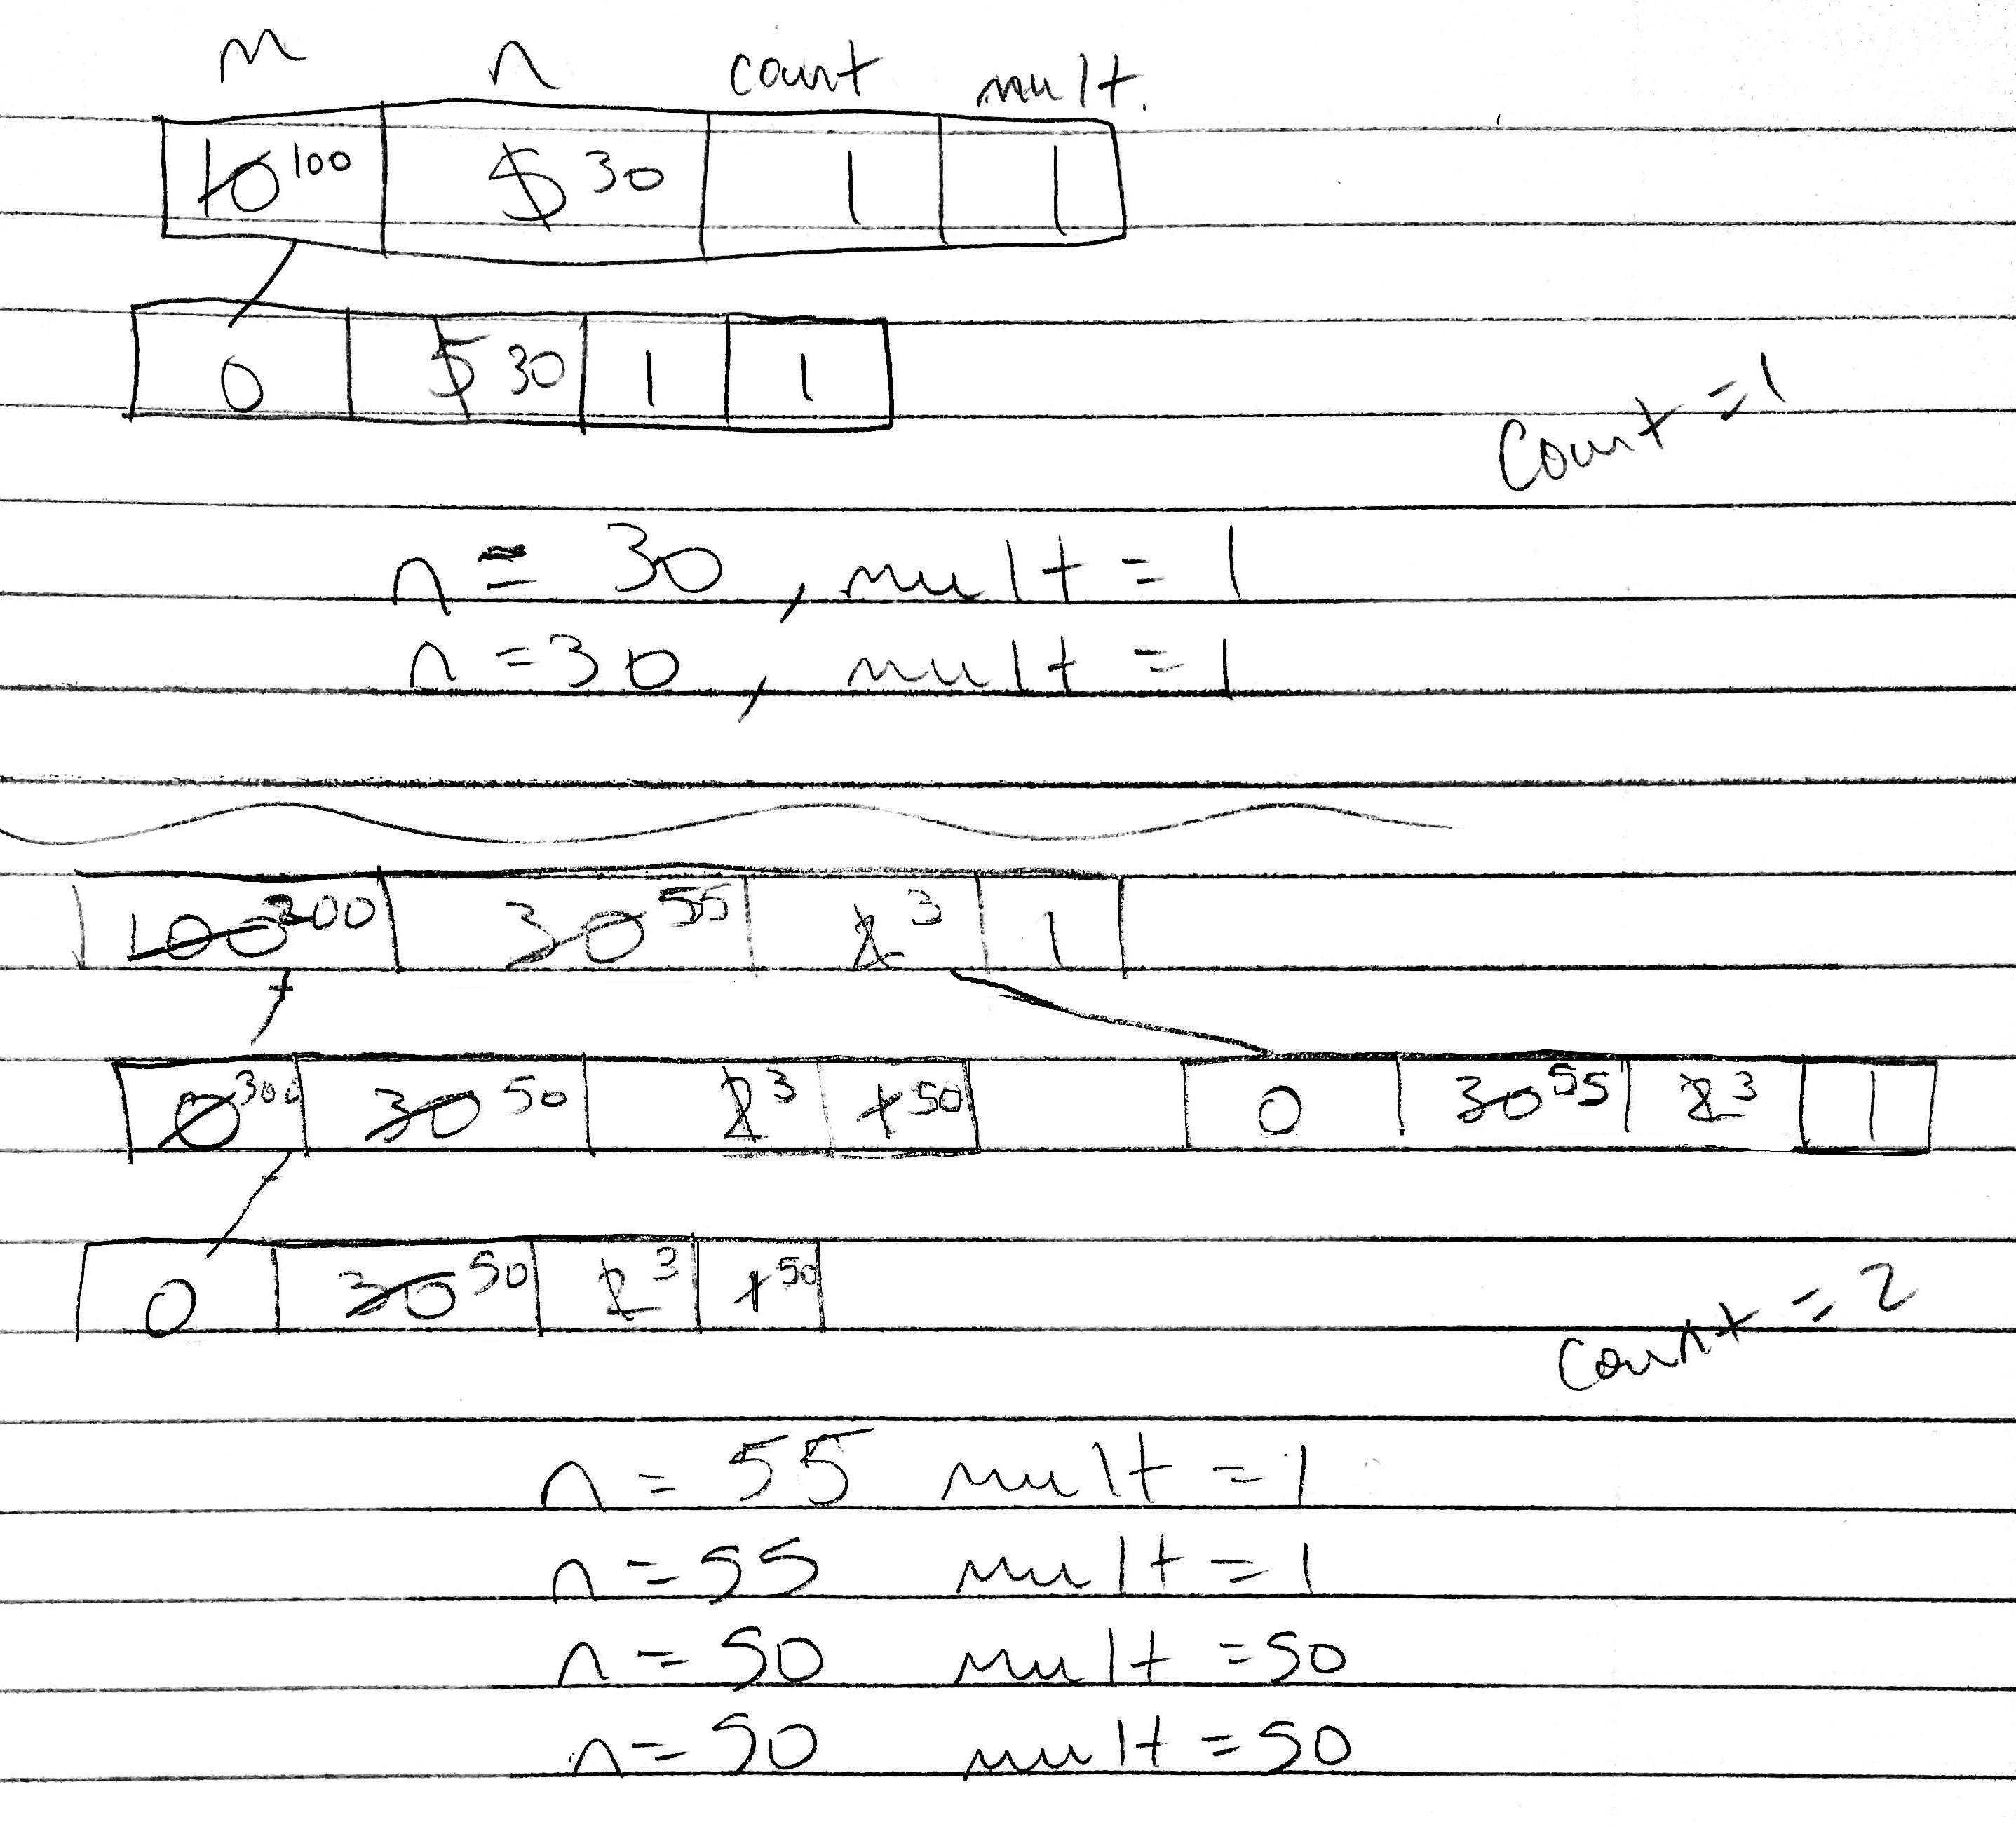 m n count mult.
10 100 5 30 1 1
0 5 30 1 1
Count = 1
n = 30 , mult = 1
n = 30 , mult = 1
100 200 30 55 2 3 1
0 300 30 50 2 3 1 50 0 30 55 2 3 1
0 30 50 2 3 1 50
Count = 2
n = 55 mult = 1
n = 55 mult = 1
n = 50 mult = 50
n = 50 mult = 50